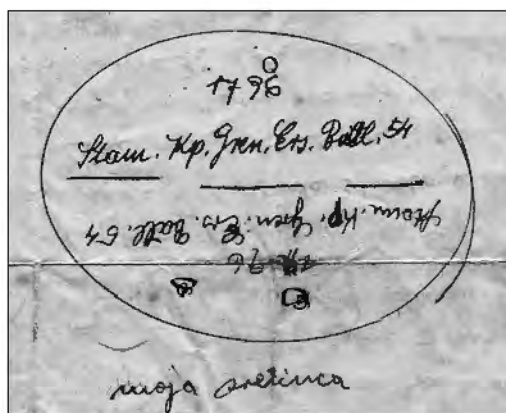 O
1796
Stam. Kp. Gren. Ers. Batl. 54
Stam. Kp. Gren. Ers. Batl. 54
1796
moja svetinca